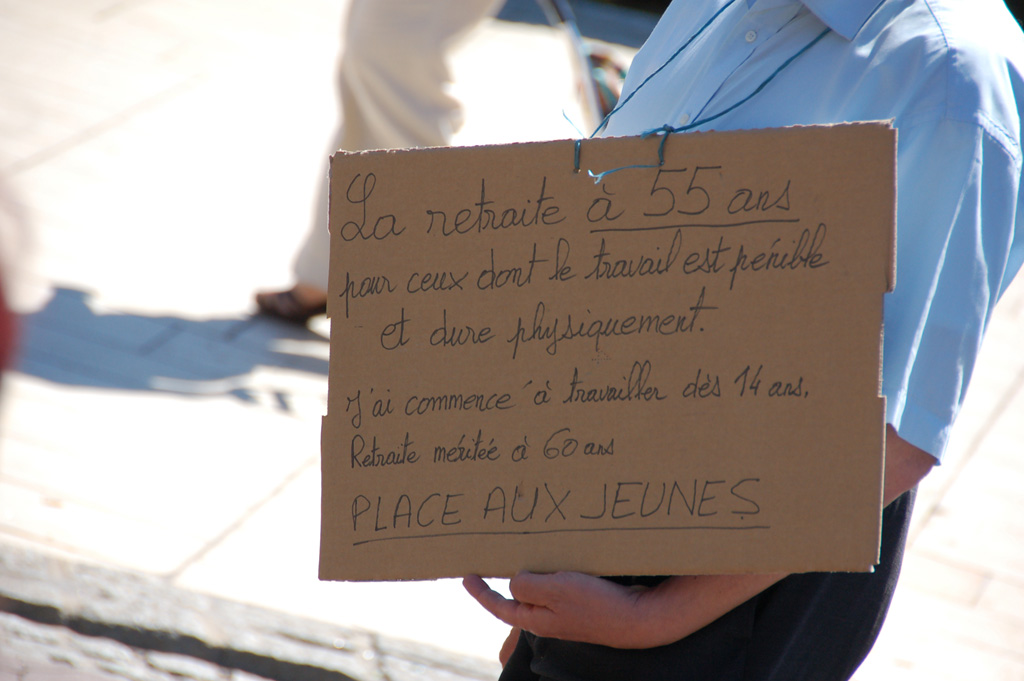 La retraite à 55 ans
pour ceux dont le travail est pénible
et dure physiquement.
J'ai commencé à travailler dès 14 ans.
Retraite méritée à 60 ans
PLACE AUX JEUNES